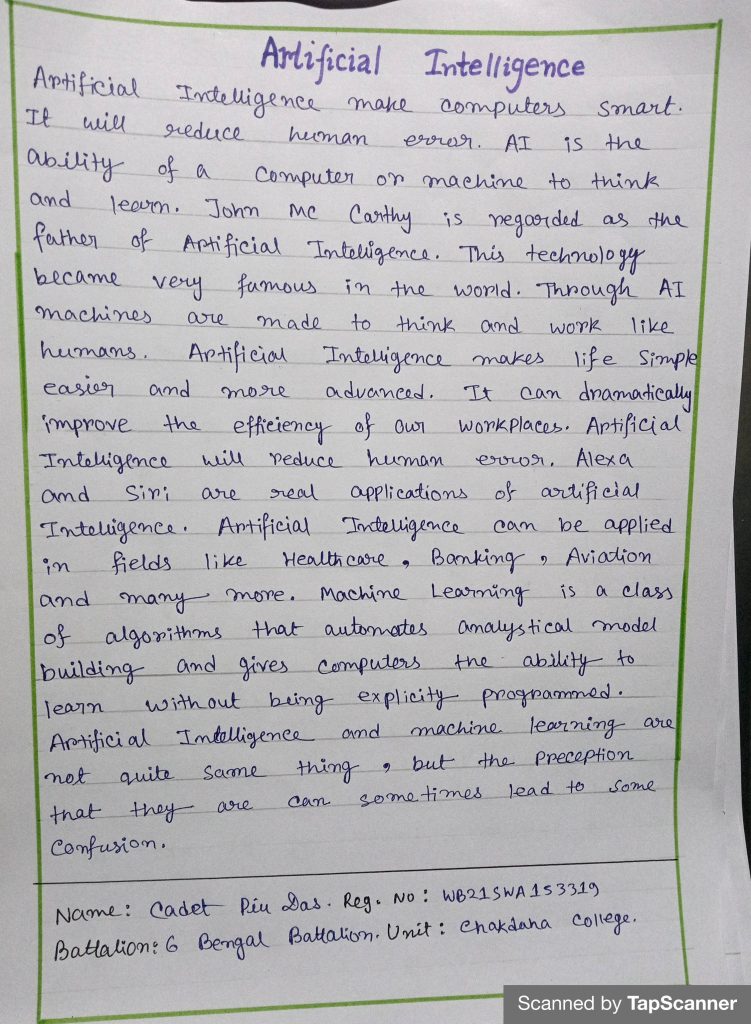 Artificial Intelligence
Artificial Intelligence make computers smart.
It will reduce human error. AI is the
ability of a computer or machine to think
and learn. John Mc Carthy is regarded as the
father of Artificial Intelligence. This technology
became very famous in the world. Through AI
machines are made to think and work like
humans. Artificial Intelligence makes life simple
easier and more advanced. It can dramatically
improve the efficiency of our workplaces. Artificial
Intelligence will reduce human error. Alexa
and Siri are real applications of artificial
Intelligence. Artificial Intelligence can be applied
in fields like Healthcare, Banking, Aviation
and many more. Machine Learning is a class
of algorithms that automates analystical model
building and gives computers the ability to
learn without being explicity programmed.
Artificial Intelligence and machine learning are
not quite same thing, but the preception
that they are can sometimes lead to some
confusion.
Name: Cadet Piu Das. Reg. No: WB21SWA153319
Battalion: 6 Bengal Battalion. Unit: Chakdaha College.
Scanned by TapScanner